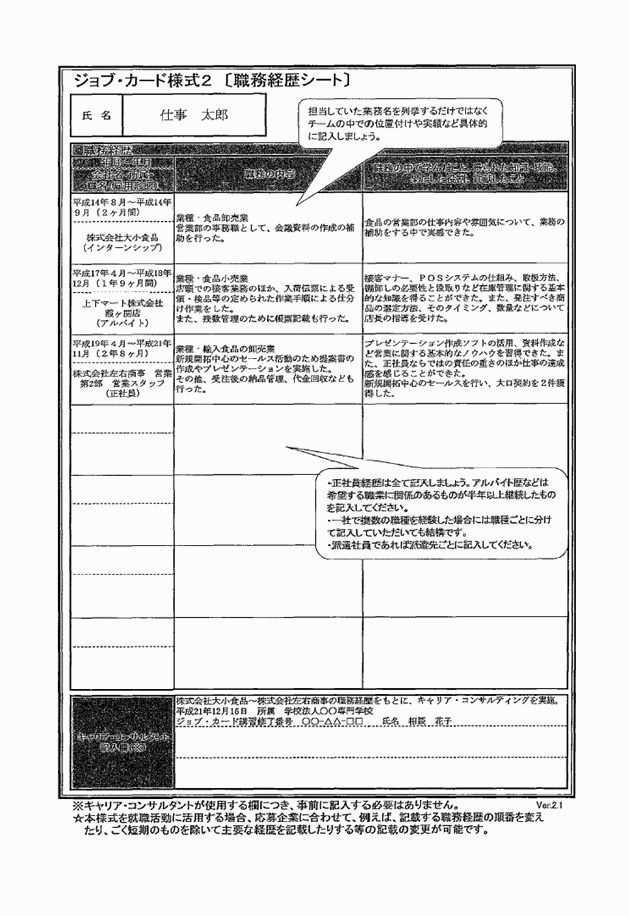 ジョブ・カード様式２〔職務経歴シート〕
氏 名
仕事　太郎
担当していた業務名を列挙するだけではなく
チームの中での位置付けや実績など具体的
に記入しましょう。
職務経歴
年月～年月
職務の内容
平成14年８月～平成14年
９月（２ヶ月間）
株式会社大小食品
（インターンシップ）
業種・食品卸売業
営業部の事務職として、会議資料の作成の補
助を行った。
食品の営業部の仕事内容や雰囲気について、業務の
補助をする中で実感できた。
平成17年４月～平成18年
12月（１年９ヶ月間）
上下マート株式会社
霞ヶ関店
（アルバイト）
業種・食品小売業
店頭での接客業務のほか、入荷伝票による受
領・検品等の定められた作業手順による仕分
け作業をした。
また、残数管理のために帳票記載も行った。
接客マナー、ＰＯＳシステムの仕組み、取扱方法、
棚卸しの必要性と段取りなど在庫管理に関する基本
的な知識を得ることができた。また、発注すべき商
品の選定方法、そのタイミング、数量などについて
店長の指導を受けた。
平成19年４月～平成21年
11月（２年８ヶ月）
株式会社左右商事　営業
第2部　営業スタッフ
（正社員）
業種・輸入食品の卸売業
新規開拓中心のセールス活動のため提案書の
作成やプレゼンテーションを実施した。
その他、受注後の納品管理、代金回収なども
行った。
プレゼンテーション作成ソフトの活用、資料作成な
ど営業に関する基本的なノウハウを習得できた。ま
た、正社員ならではの責任の重さのほか仕事の達成
感を感じることができた。
新規開拓中心のセールスを行い、大口契約を２件獲
得した。
・正社員経歴は全て記入しましょう。アルバイト歴などは
希望する職業に関係のあるものが半年以上継続したもの
を記入してください。
・一社で複数の職種を経験した場合には職種ごとに分け
て記入していただいても結構です。
・派遣社員であれば派遣先ごとに記入してください。
キャリア・コンサルタント
記入欄(※)
株式会社大小食品～株式会社左右商事の職務経歴をもとに、キャリア・コンサルティングを実施。
平成21年12月16日　所属　学校法人〇〇専門学校
ジョブ・カード講習修了番号　〇〇-△△-□□　氏名　相談　花子
※キャリア・コンサルタントが使用する欄につき、事前に記入する必要はありません。
Ver.2.1
☆本様式を就職活動に活用する場合、応募企業に合わせて、例えば、記載する職務経歴の順番を変え
たり、ごく短期のものを除いて主要な経歴を記載したりする等の記載の変更が可能です。